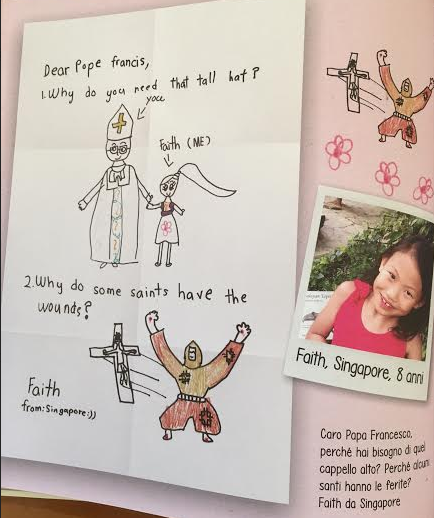 Dear Pope francis,
1. Why do you need that tall hat?
you
Faith (ME)
2. Why do some saints have the
wounds?
Faith
from: Singapore :))
Faith, Singapore, 8 anni
Caro Papa Francesco,
perché hai bisogno di quel
cappello alto? Perché alcuni
santi hanno le ferite?
Faith da Singapore